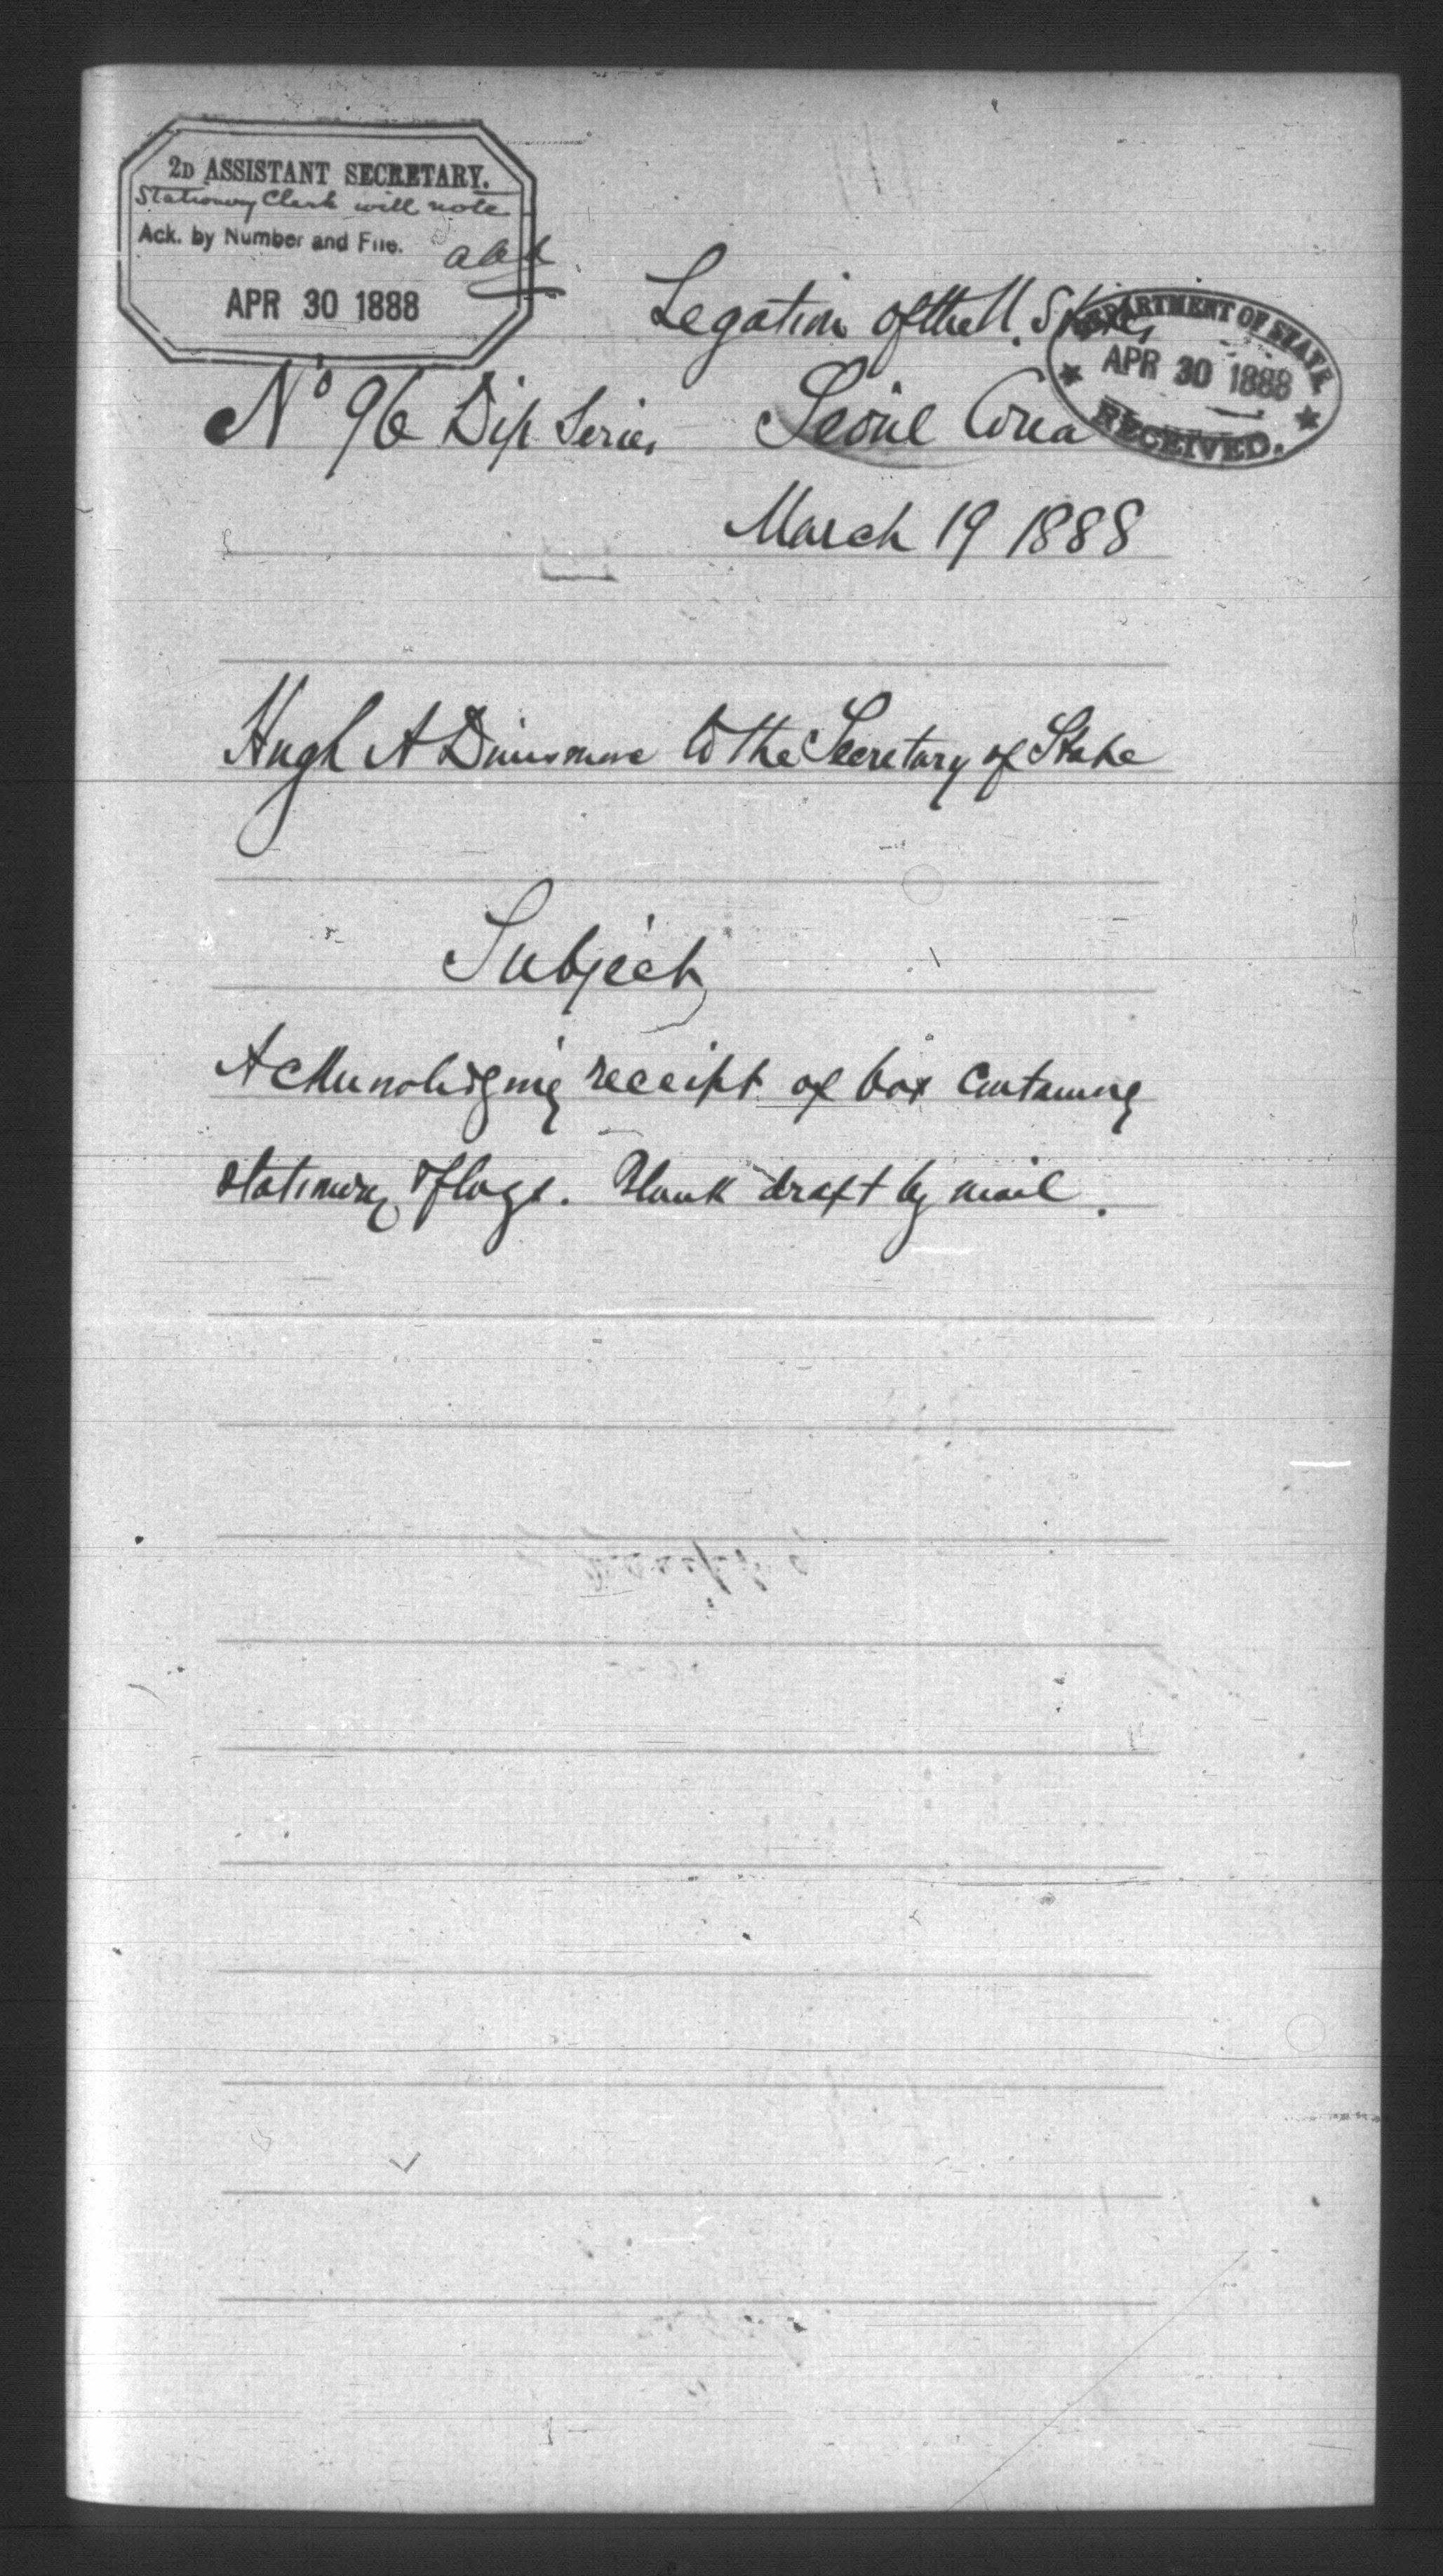 2D ASSISTANT SECRETARY.
Stationery Clerk will note
Ack. by Number and File.
APR 30 1888
Legation of the U. States
DEPARTMENT OF STATE
APR 30 1888
RECEIVED.
No 96 Dip Series
Seoul Corea
March 19 1888
Hugh A Dinsmore to the Secretary of State
Subject
Acknowledging receipt of box containing
stationery & flags. Blank draft by mail.